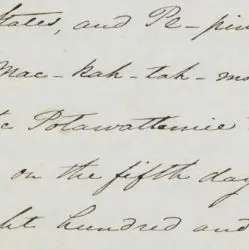 States, and Pe-pin
Mac-kah-tah-mo
Potawattemie
on the fifth day
hundred and